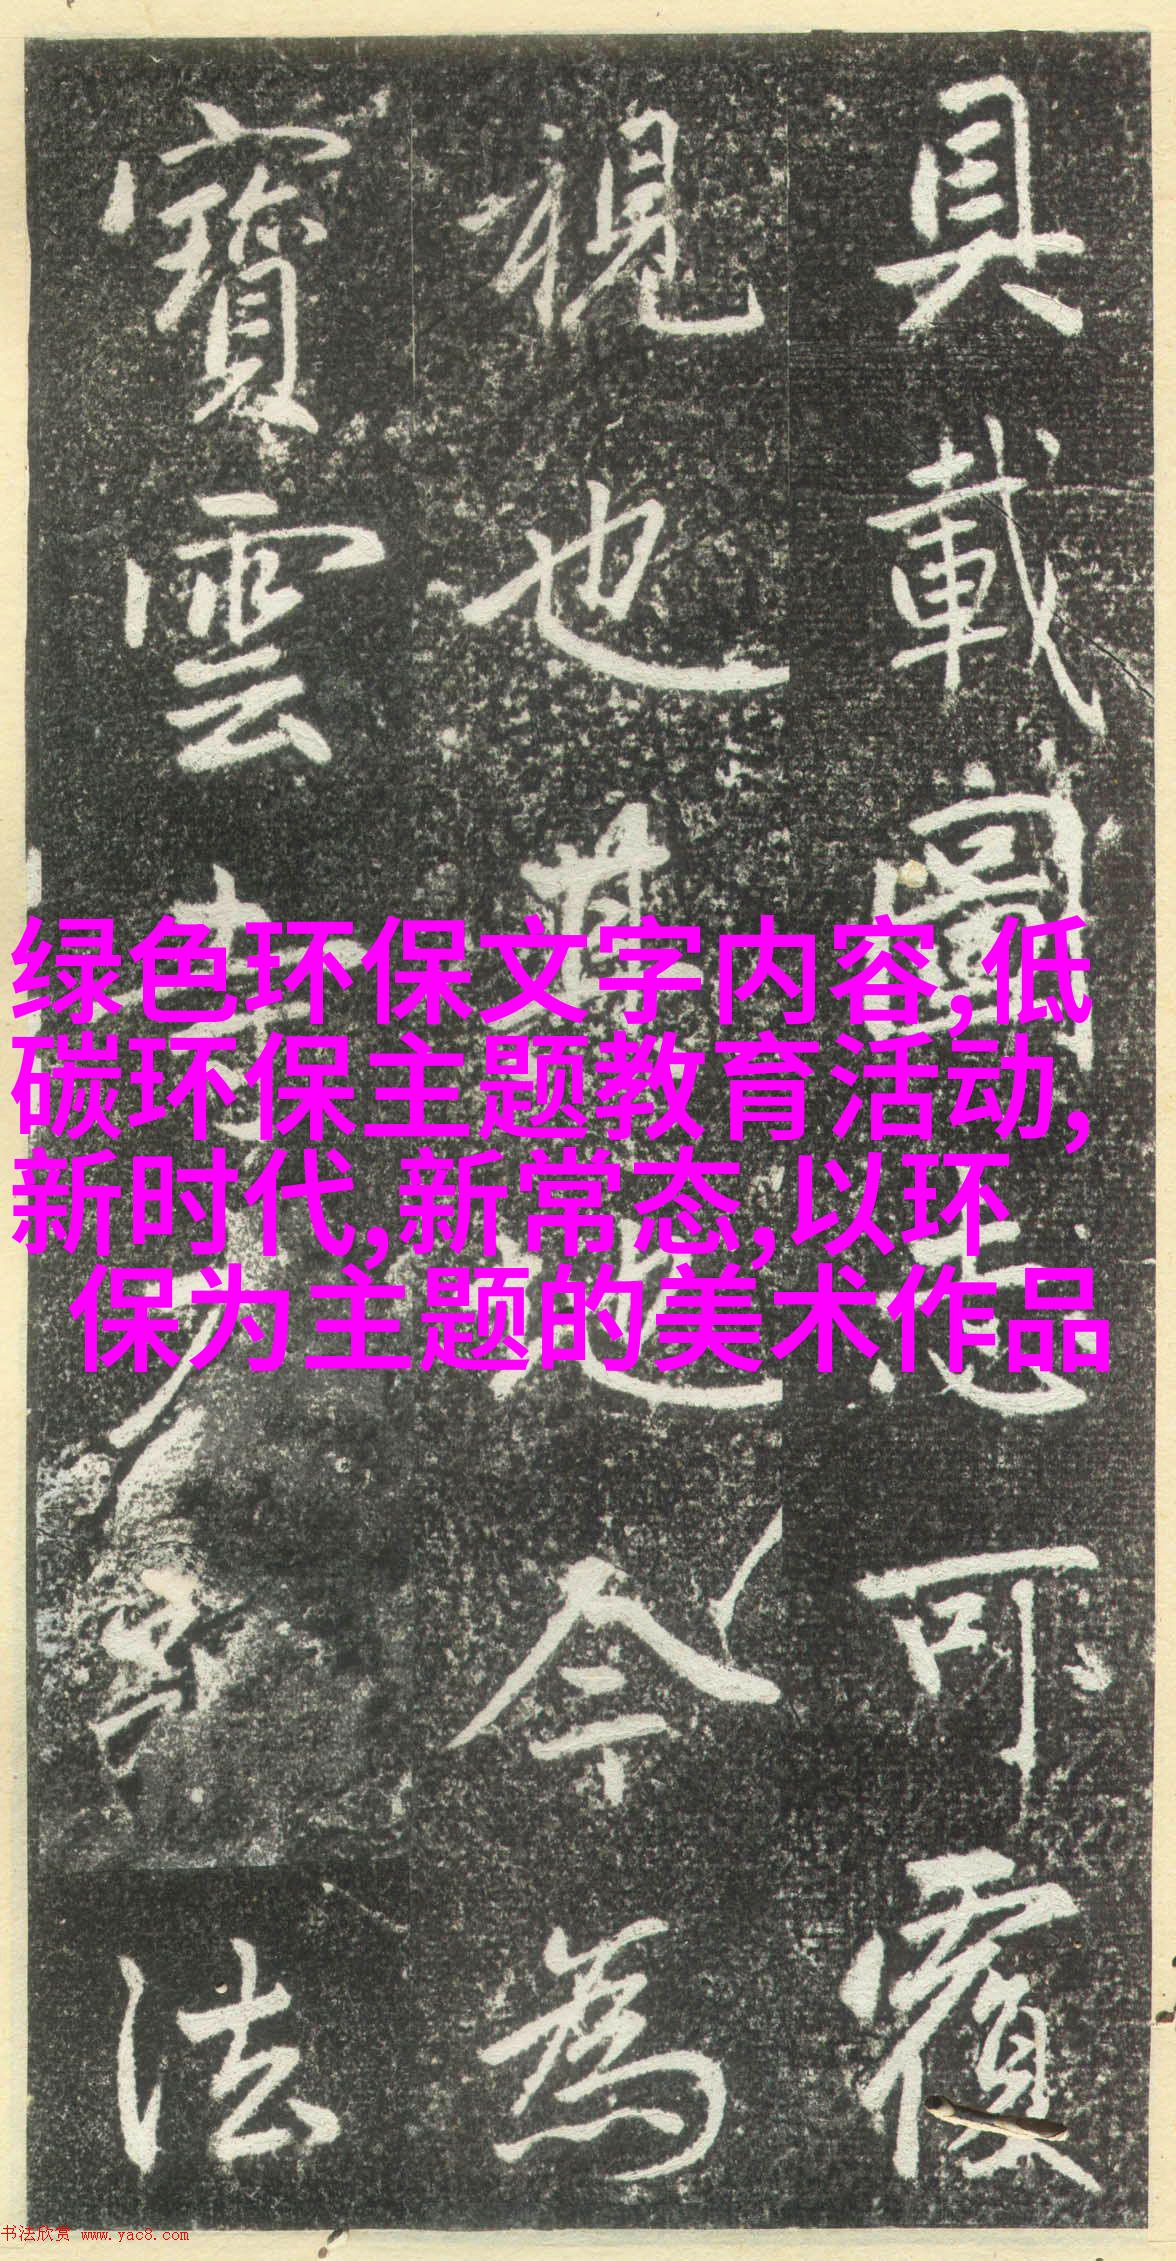 具載圖志可覆
視也其地今為
寶雲
法
绿色环保文字内容,低
碳环保主题教育活动,
新时代,新常态,以环
保为主题的美术作品
书法欣赏 www.yac8.com